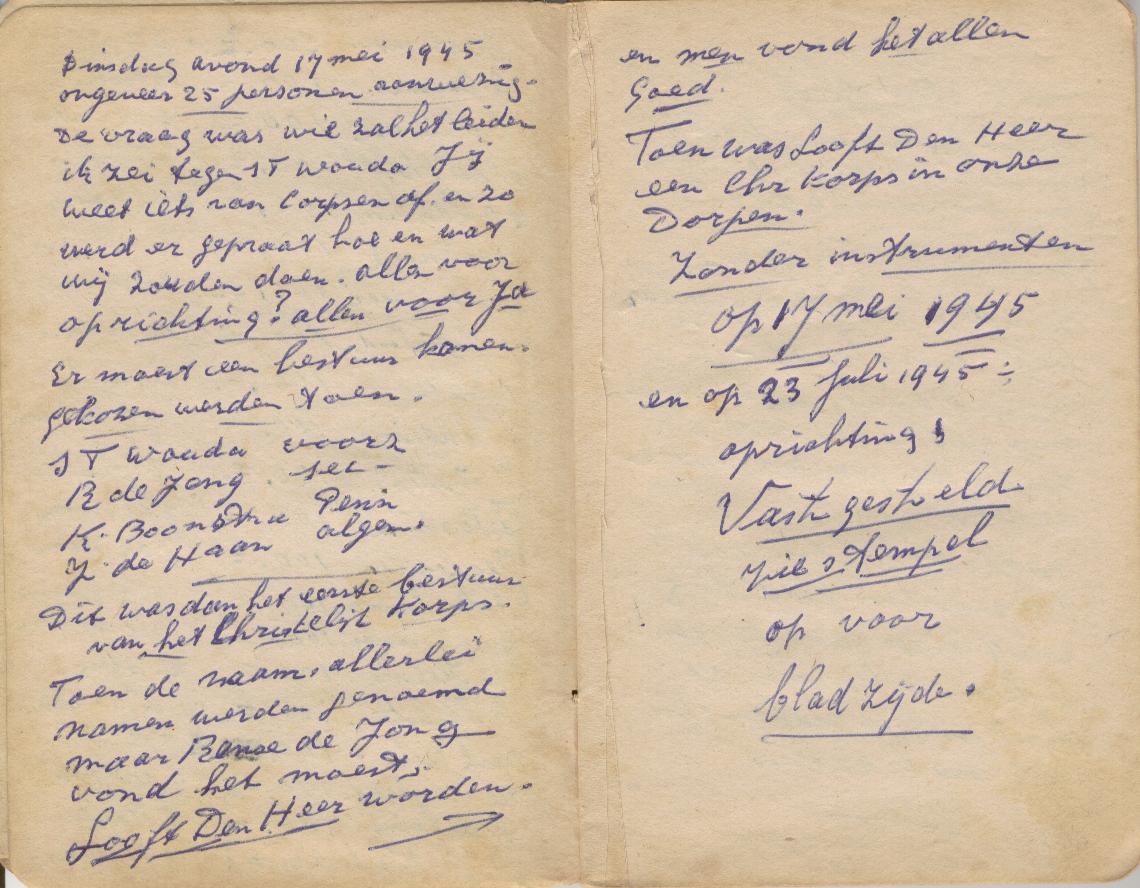 Dinsdag avond 17 mei 1945
ongeveer 25 personen aanwezig.
De vraag was wie zal het leiden
ik zei tegen ST wouda Jij
weet iets van Corpsen af. en zo
werd er gepraat hoe en wat
wij zouden doen. allen voor
oprichting? allen voor Ja
Er moest een bestuur komen.
gekozen werden toen.
ST wouda voorz
R de Jong. sec -
K. Boonstra Penn
J. de Haan algem.
Dit was dan het eerste bestuur
van het Christelijk Korps.
Toen de naam. allerlei
namen werden genoemd
maar de Jong
vond het moest.
Looft Den Heer worden.
en men vond het allen
Goed.
Toen was Looft Den Heer
een Chr Korps in onze
Dorpen.
Zonder instrumenten
op 17 mei 1945
en op 23 Juli 1945 :
oprichting
Vast gesteld
zie stempel
op voor
blad zijde.